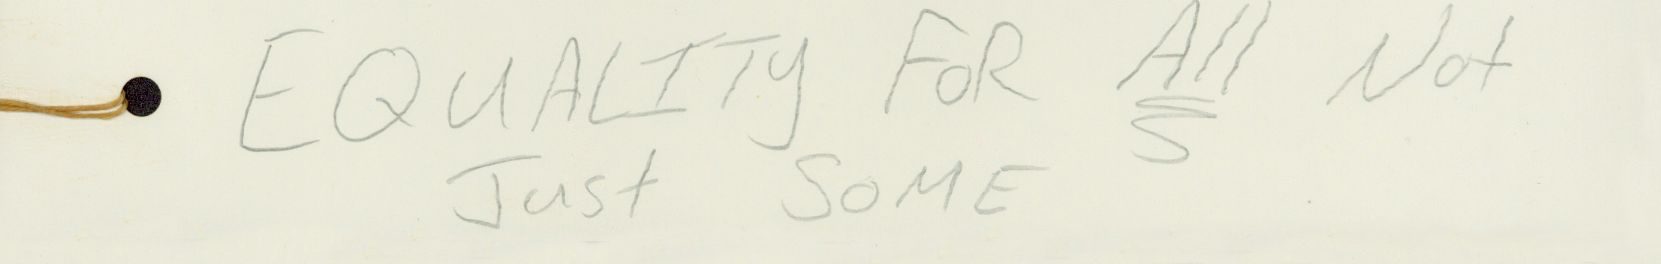 EQUALITY FOR All Not
Just SOME